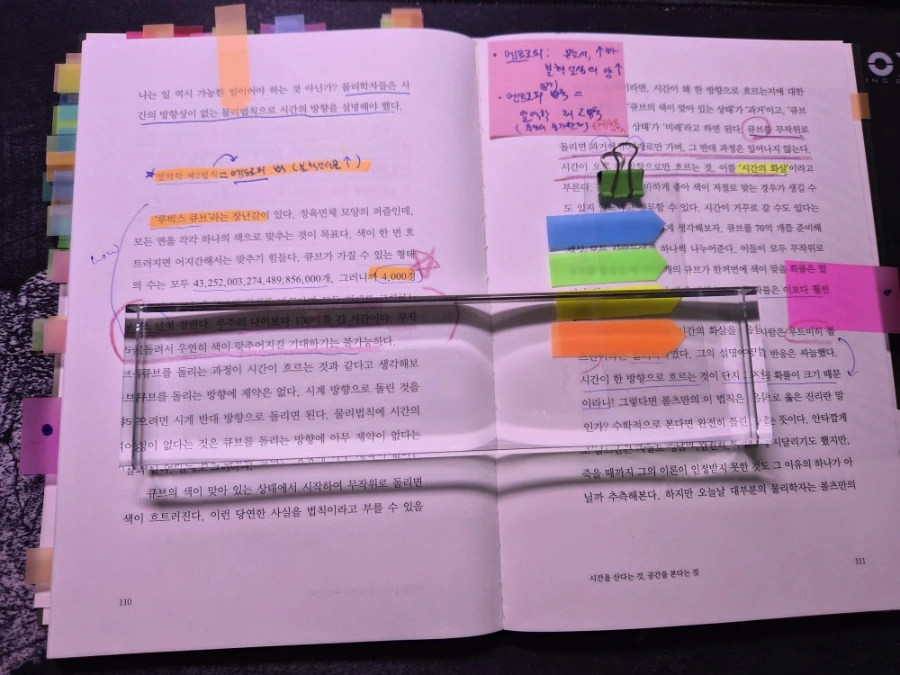 나는 일 역시 가능한 일이어야 하는 것 아닌가? 물리학자들은 시
간의 방향성이 없는 물리법칙으로 시간의 방향을 설명해야 했다.
열역학 제2법칙 = 엔트로피 법칙 ( ↑)
'루빅스 큐브'라는 장난감이 있다. 정육면체 모양의 퍼즐인데,
모든 면을 각각 하나의 색으로 맞추는 것이 목표다. 색이 한 번 흐
트러지면 어지간해서는 맞추기 힘들다. 큐브가 가질 수 있는 형태
의 수는 모두 43,252,003,274,489,856,000개, 그러니까 4,000경
난기 걸린다. 우주의 나이보다 100배쯤 긴 시간이다. 무작
돌려서 우연히 색이 맞추어지길 기대하기는 불가능하다.
큐브를 돌리는 과정이 시간이 흐르는 것과 같다고 생각해보
큐브를 돌리는 방향에 제약은 없다. 시계 방향으로 돌린 것을
으려면 시계 반대 방향으로 돌리면 된다. 물리법칙에 시간의
성이 없다는 것은 큐브를 돌리는 방향에 아무 제약이 없다는
큐브의 색이 맞아 있는 상태에서 시작하여 무작위로 돌리면
색이 흐트러진다. 이런 당연한 사실을 법칙이라고 부를 수 있을
110
• 엔트로피: 무질서, ↑
• 엔트로피 법칙 =
열역학 제2법칙
이라면, 시간이 왜 한 방향으로 흐르는지에 대한
'큐브의 색이 맞아 있는 상태'가 '과거'이고, '큐브
상태'가 '미래'라고 하면 된다. 큐브를 무작위로
돌리면 과거에 로만 가며, 그 반대 과정은 일어나지 않는다.
시간이 으로만 흐르는 것, 이를 '시간의 화살'이라고
부른다. 하게 좋아 색이 저절로 맞는 경우가 생길 수
도 있지 문할 수 있다. 시간이 거꾸로 갈 수도 있다는
게 생각해보자. 큐브를 70억 개쯤 준비해
하나씩 나누어준다. 이들이 모두 무작위로
개의 큐브가 한꺼번에 색이 맞을 확률은 얼
률은 이보다 훨씬
시간의 화살을 사람은 루트비히 볼
그의 설명에 반응은 싸늘했다.
시간이 한 방향으로 흐르는 것이 단지 확률이 크기 때문
이라니! 그렇다면 볼츠만의 이 법칙은 로 옳은 진리란 말
인가? 수학적으로 본다면 완전히 틀린 뜻이다. 안타깝게
시달리기도 했지만,
죽을 때까지 그의 이론이 인정받지 못한 것도 그 이유의 하나가 아
닐까 추측해본다. 하지만 오늘날 대부분의 물리학자는 볼츠만의
시간을 산다는 것, 공간을 본다는 것
111